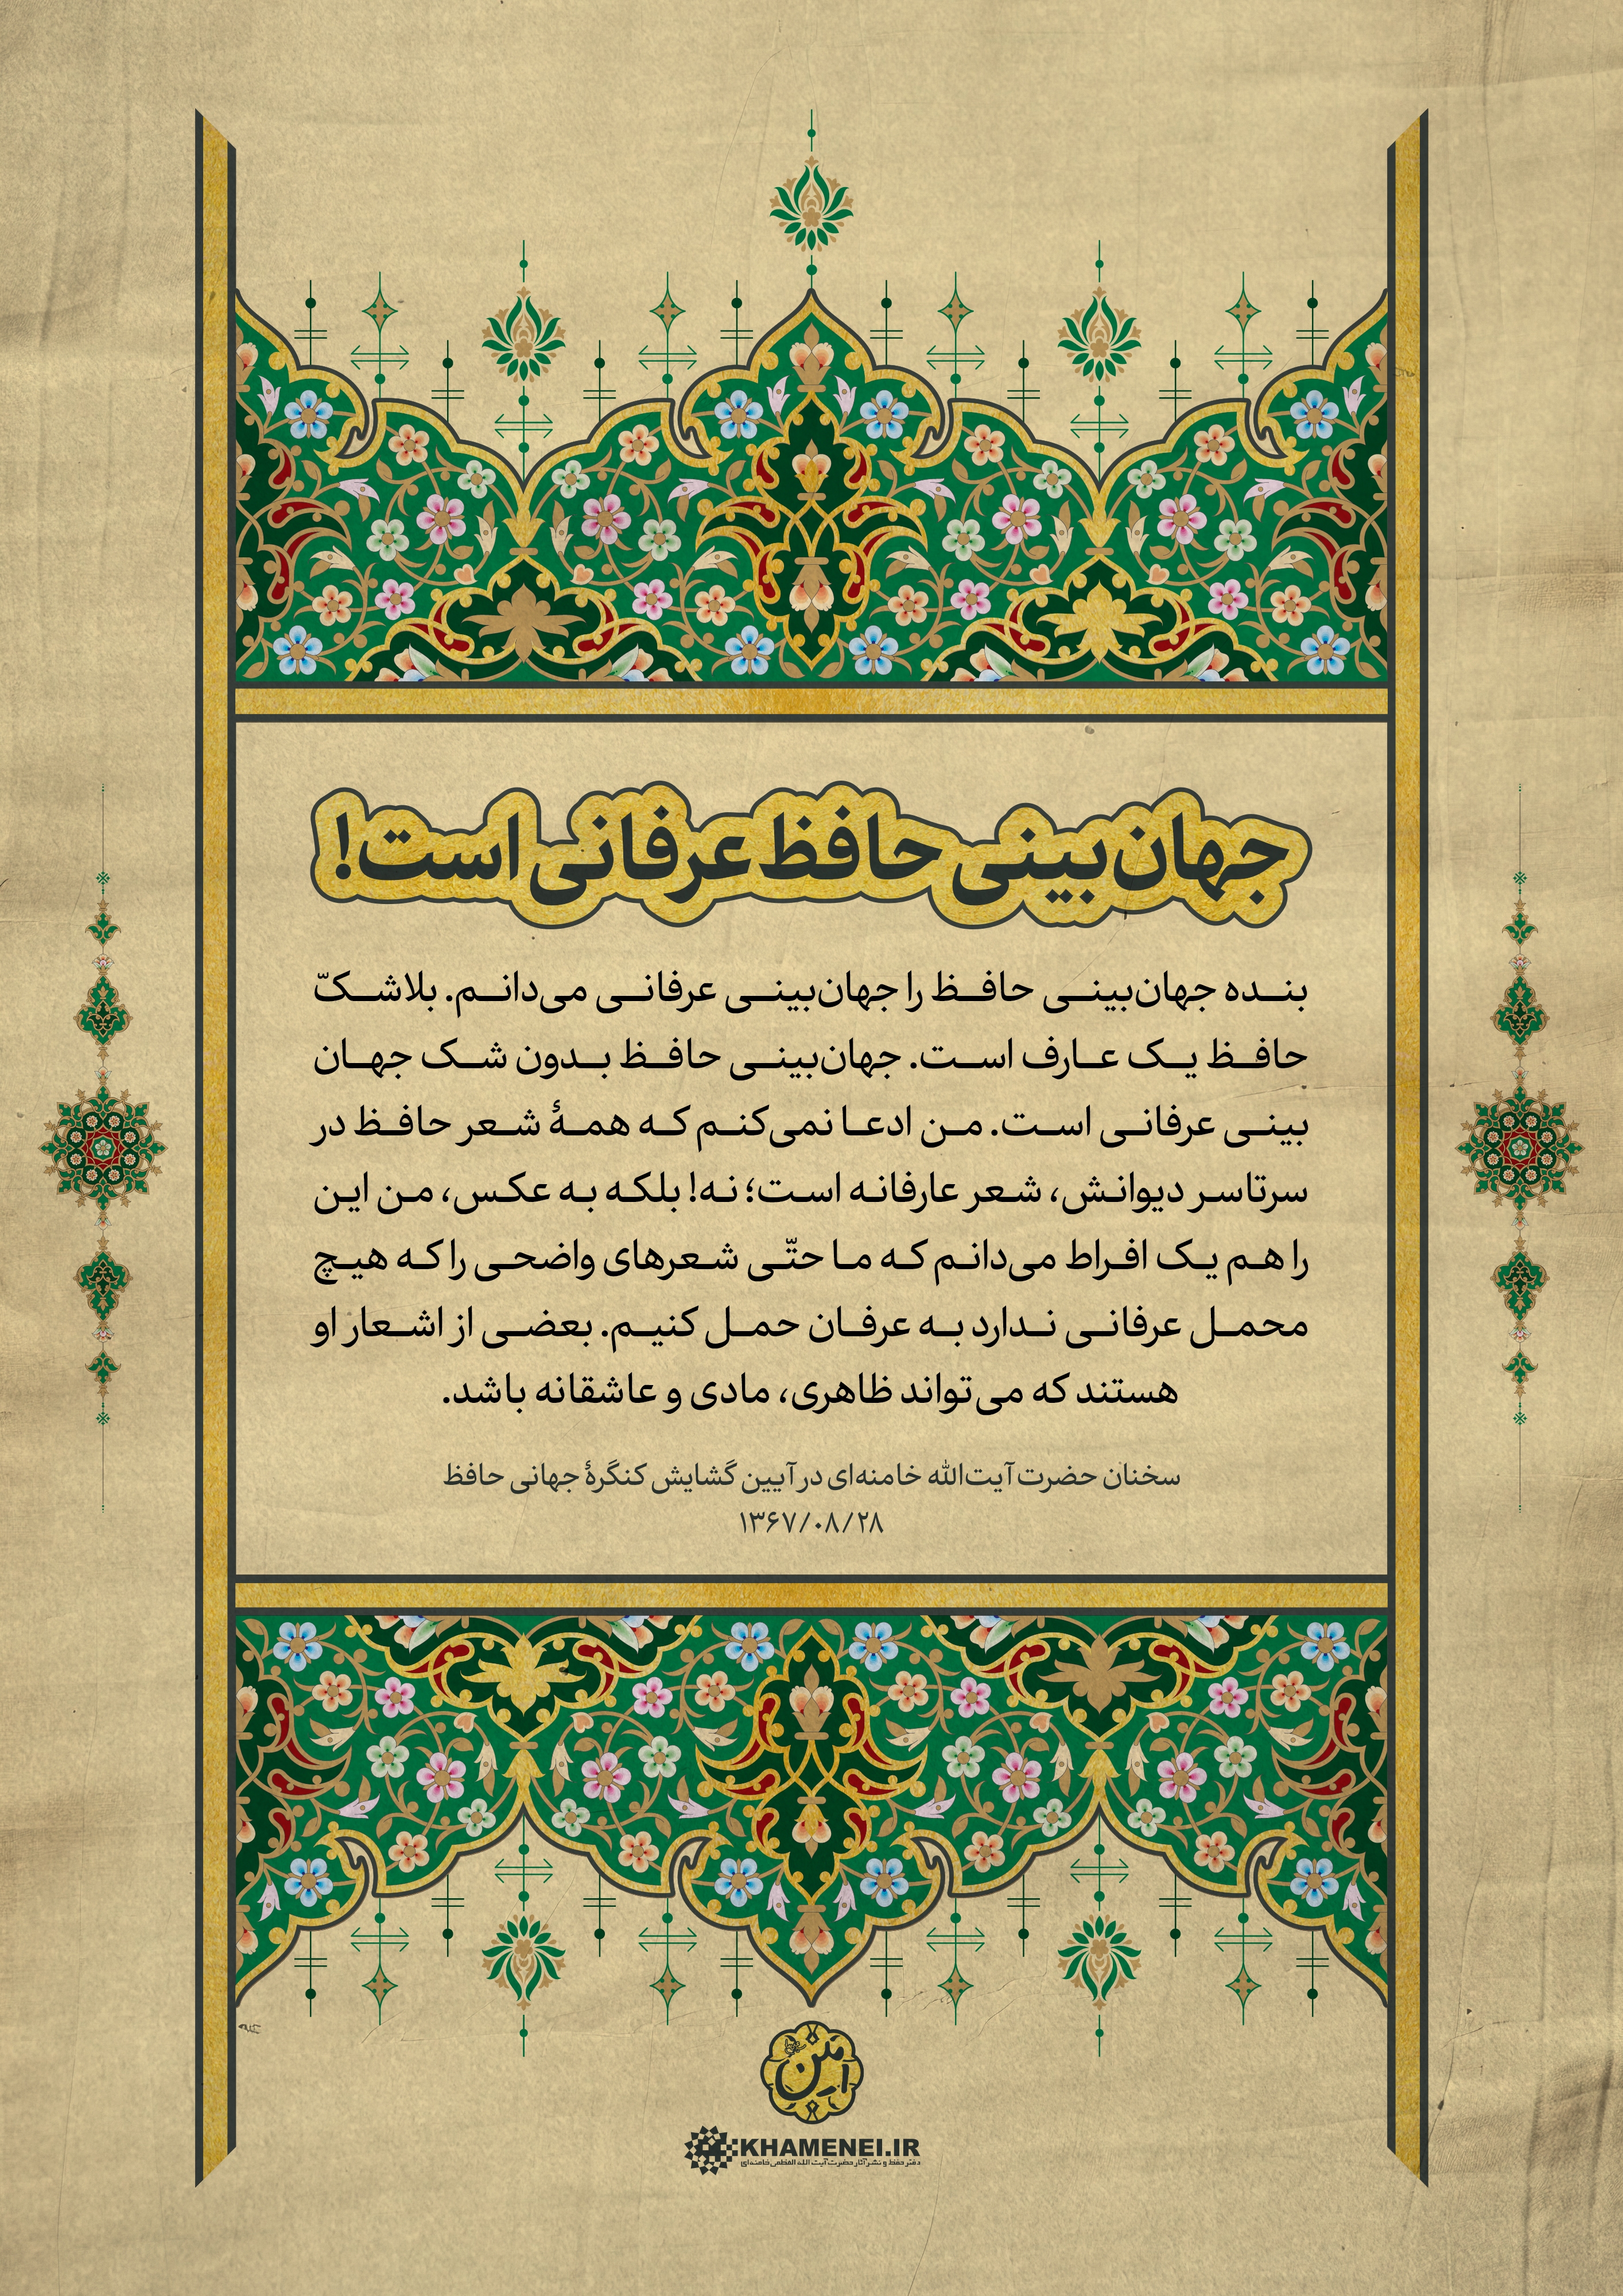 جهان‌بینی حافظ عرفانی است!
بنده جهان‌بینی حافظ را جهان‌بینی عرفانی می‌دانم. بلاشکّ
حافظ یک عارف است. جهان‌بینی حافظ بدون شک جهان
بینی عرفانی است. من ادعا نمی‌کنم که همهٔ شعر حافظ در
سرتاسر دیوانش، شعر عارفانه است؛ نه! بلکه به عکس، من این
را هم یک افراط می‌دانم که ما حتّی شعرهای واضحی را که هیچ
محمل عرفانی ندارد به عرفان حمل کنیم. بعضی از اشعار او
هستند که می‌تواند ظاهری، مادی و عاشقانه باشد.
سخنان حضرت آیت‌الله خامنه‌ای در آیین گشایش کنگرهٔ جهانی حافظ
۱۳۶۷/۰۸/۲۸
KHAMENEI.IR
دفتر حفظ و نشر آثار حضرت آیت الله العظمی خامنه‌ای